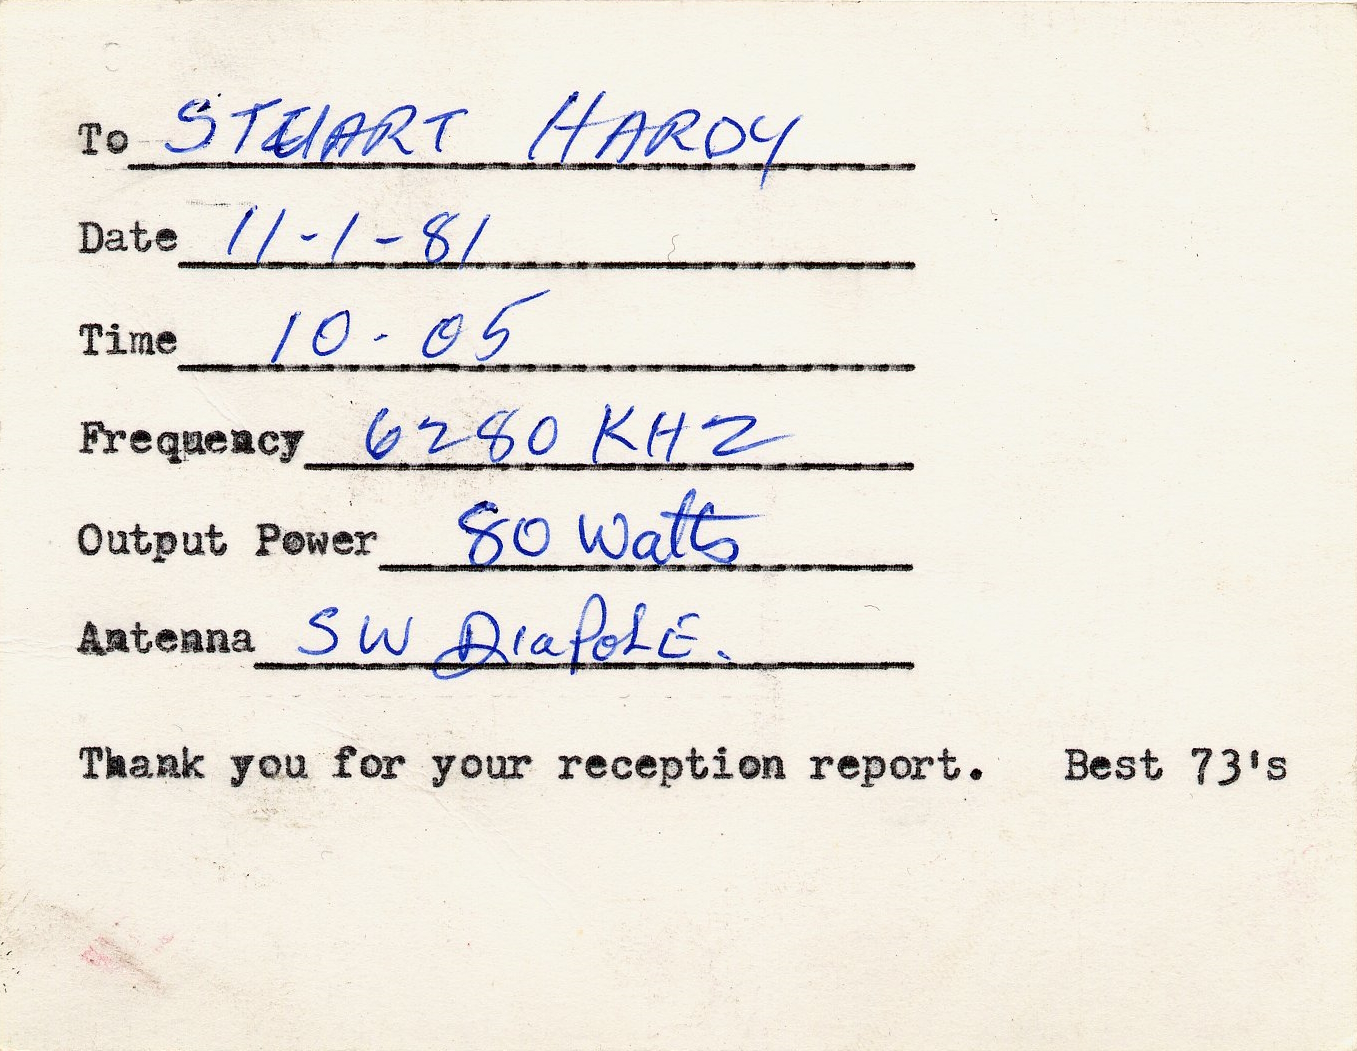 To STUART HARDY
Date 11-1-81
Time 10-05
Frequency 6280 KHZ
Output Power 80 Watts
Antenna SW DiaPoLE.
Thank you for your reception report. Best 73's